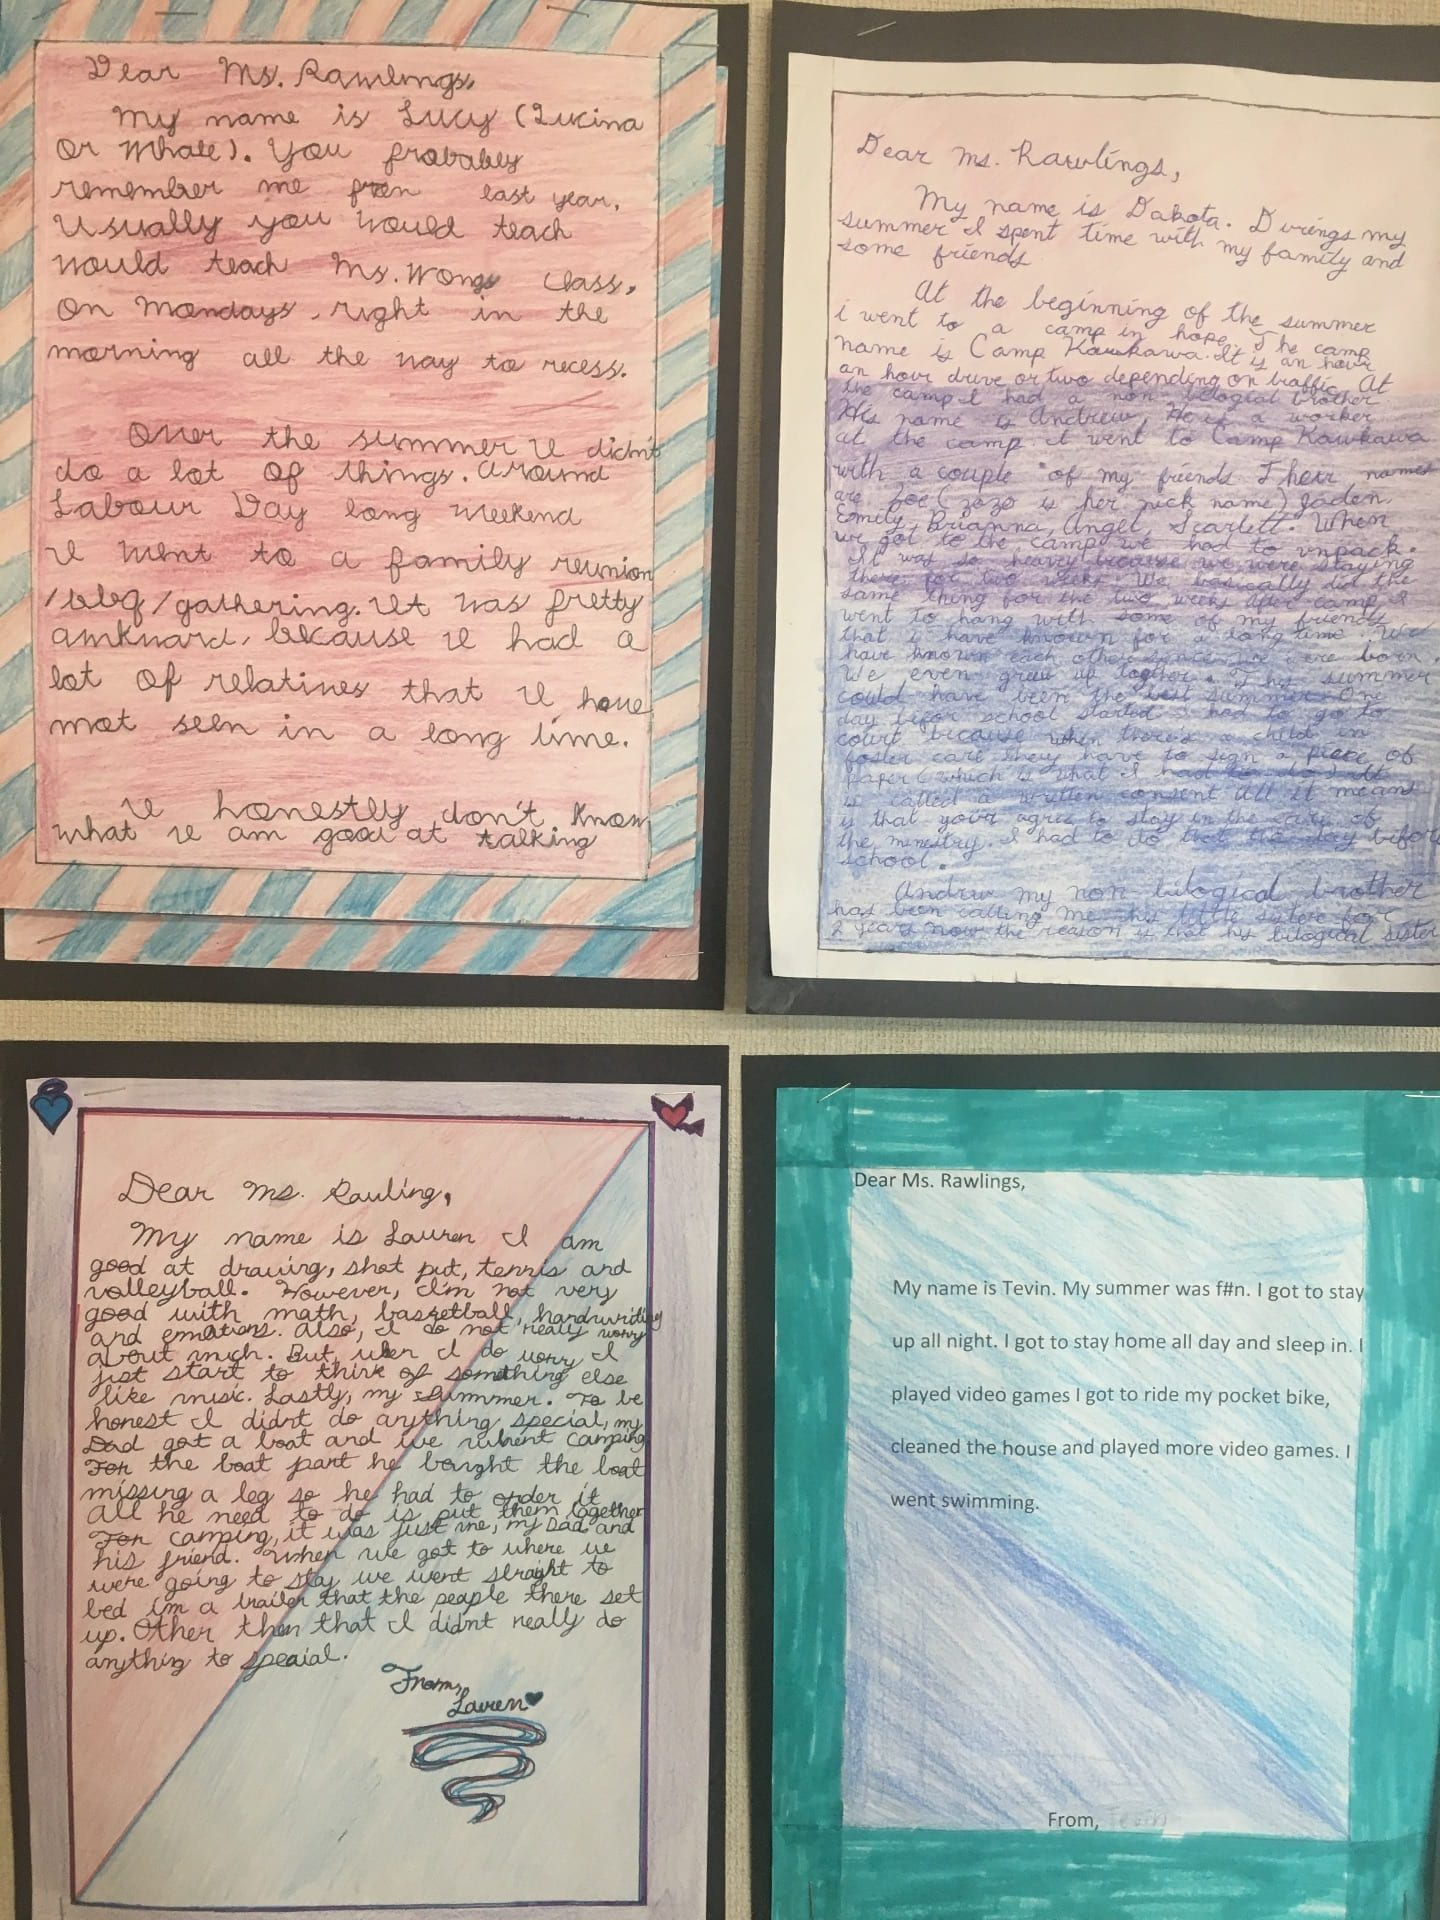 Dear Ms. Rawlings,
My name is Lucy (Lucina
or Whale). You probably
remember me from last year.
Usually you would teach
would teach Ms. Wongs class,
on Mondays, right in the
morning all the way to recess.
Over the summer I didn't
do a lot of things. Around
Labour Day long weekend
I went to a family reunion
/bbq/gathering. It was pretty
awkward, because I had a
lot of relatives that I have
not seen in a long time.
I honestly don't know
what I am good at talking
Dear Ms. Rawlings,
My name is Dakota. Durings my
summer I spent time with my family and
some friends.
At the beginning of the summer
i went to a camp in hope. The camp
name is Camp Kawkawa. It is an hour
an hour drive or two depending on traffic. At
the camp I had a non-bilogial brother
His name is Andrew. He is a worker
at the camp. I went to Camp Kawkawa
with a couple of my friends Their names
are Zoe (zozo is her nick name) Jaden,
Emily, Brianna, Angel, Scarlett. When
we got to the camp we had to unpack.
It was so heavy because we were staying
there for two weeks. We basically did the
same thing for the two weeks after camp I
went to hang with some of my friends
that i have known for a long time. We
have known each other since we were born.
We even grew up together. This summer
could have been the best summer. One
day befor school started I had to go to
court because when there's a child in
foster care they have to sign a piece of
paper (which is what I had to do) It
is called a written consent all it means
is that your agree to stay in the care of
the ministry. I had to do that the day before
school.
Andrew my non-bilogical brother
has been calling me his little sister for
2 years now the reason is that his bilogical sister
Dear Ms. Rauling,
My name is Lauren I am
good at drawing, shot put, tennis and
volleyball. However, I'm not very
good with math, basketball, handwriting
and emotions. Also, I do not really worry
about much. But, when I do worry I
just start to think of something else
like music. Lastly, my summmer. To be
honest I didnt do anything special, my
Dad got a boat and we whent camping
For the boat part he bought the boat
missing a leg so he had to order it
All he need to do is put them together
For camping, it was just me, my Dad and
his friend. When we got to where we
were going to stay we went straight to
bed im a trailer that the people there set
up. Other then that I didnt really do
anything to speaial.
From,
Lauren
Dear Ms. Rawlings,
My name is Tevin. My summer was f#n. I got to stay
up all night. I got to stay home all day and sleep in. I
played video games I got to ride my pocket bike,
cleaned the house and played more video games. I
went swimming.
From, Tevin